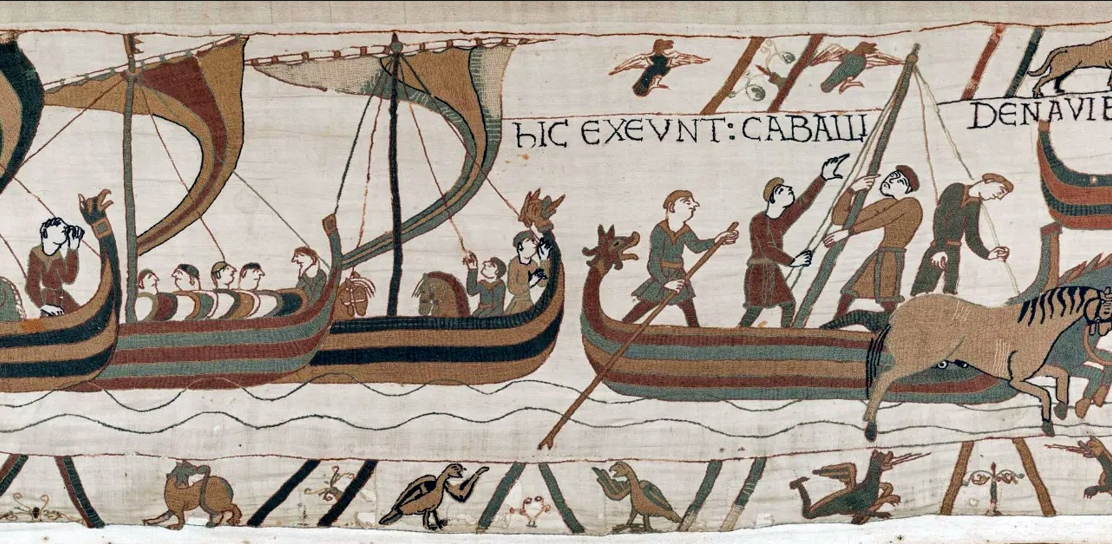 hIC EXEVNT: CABALLI
DENAVIB